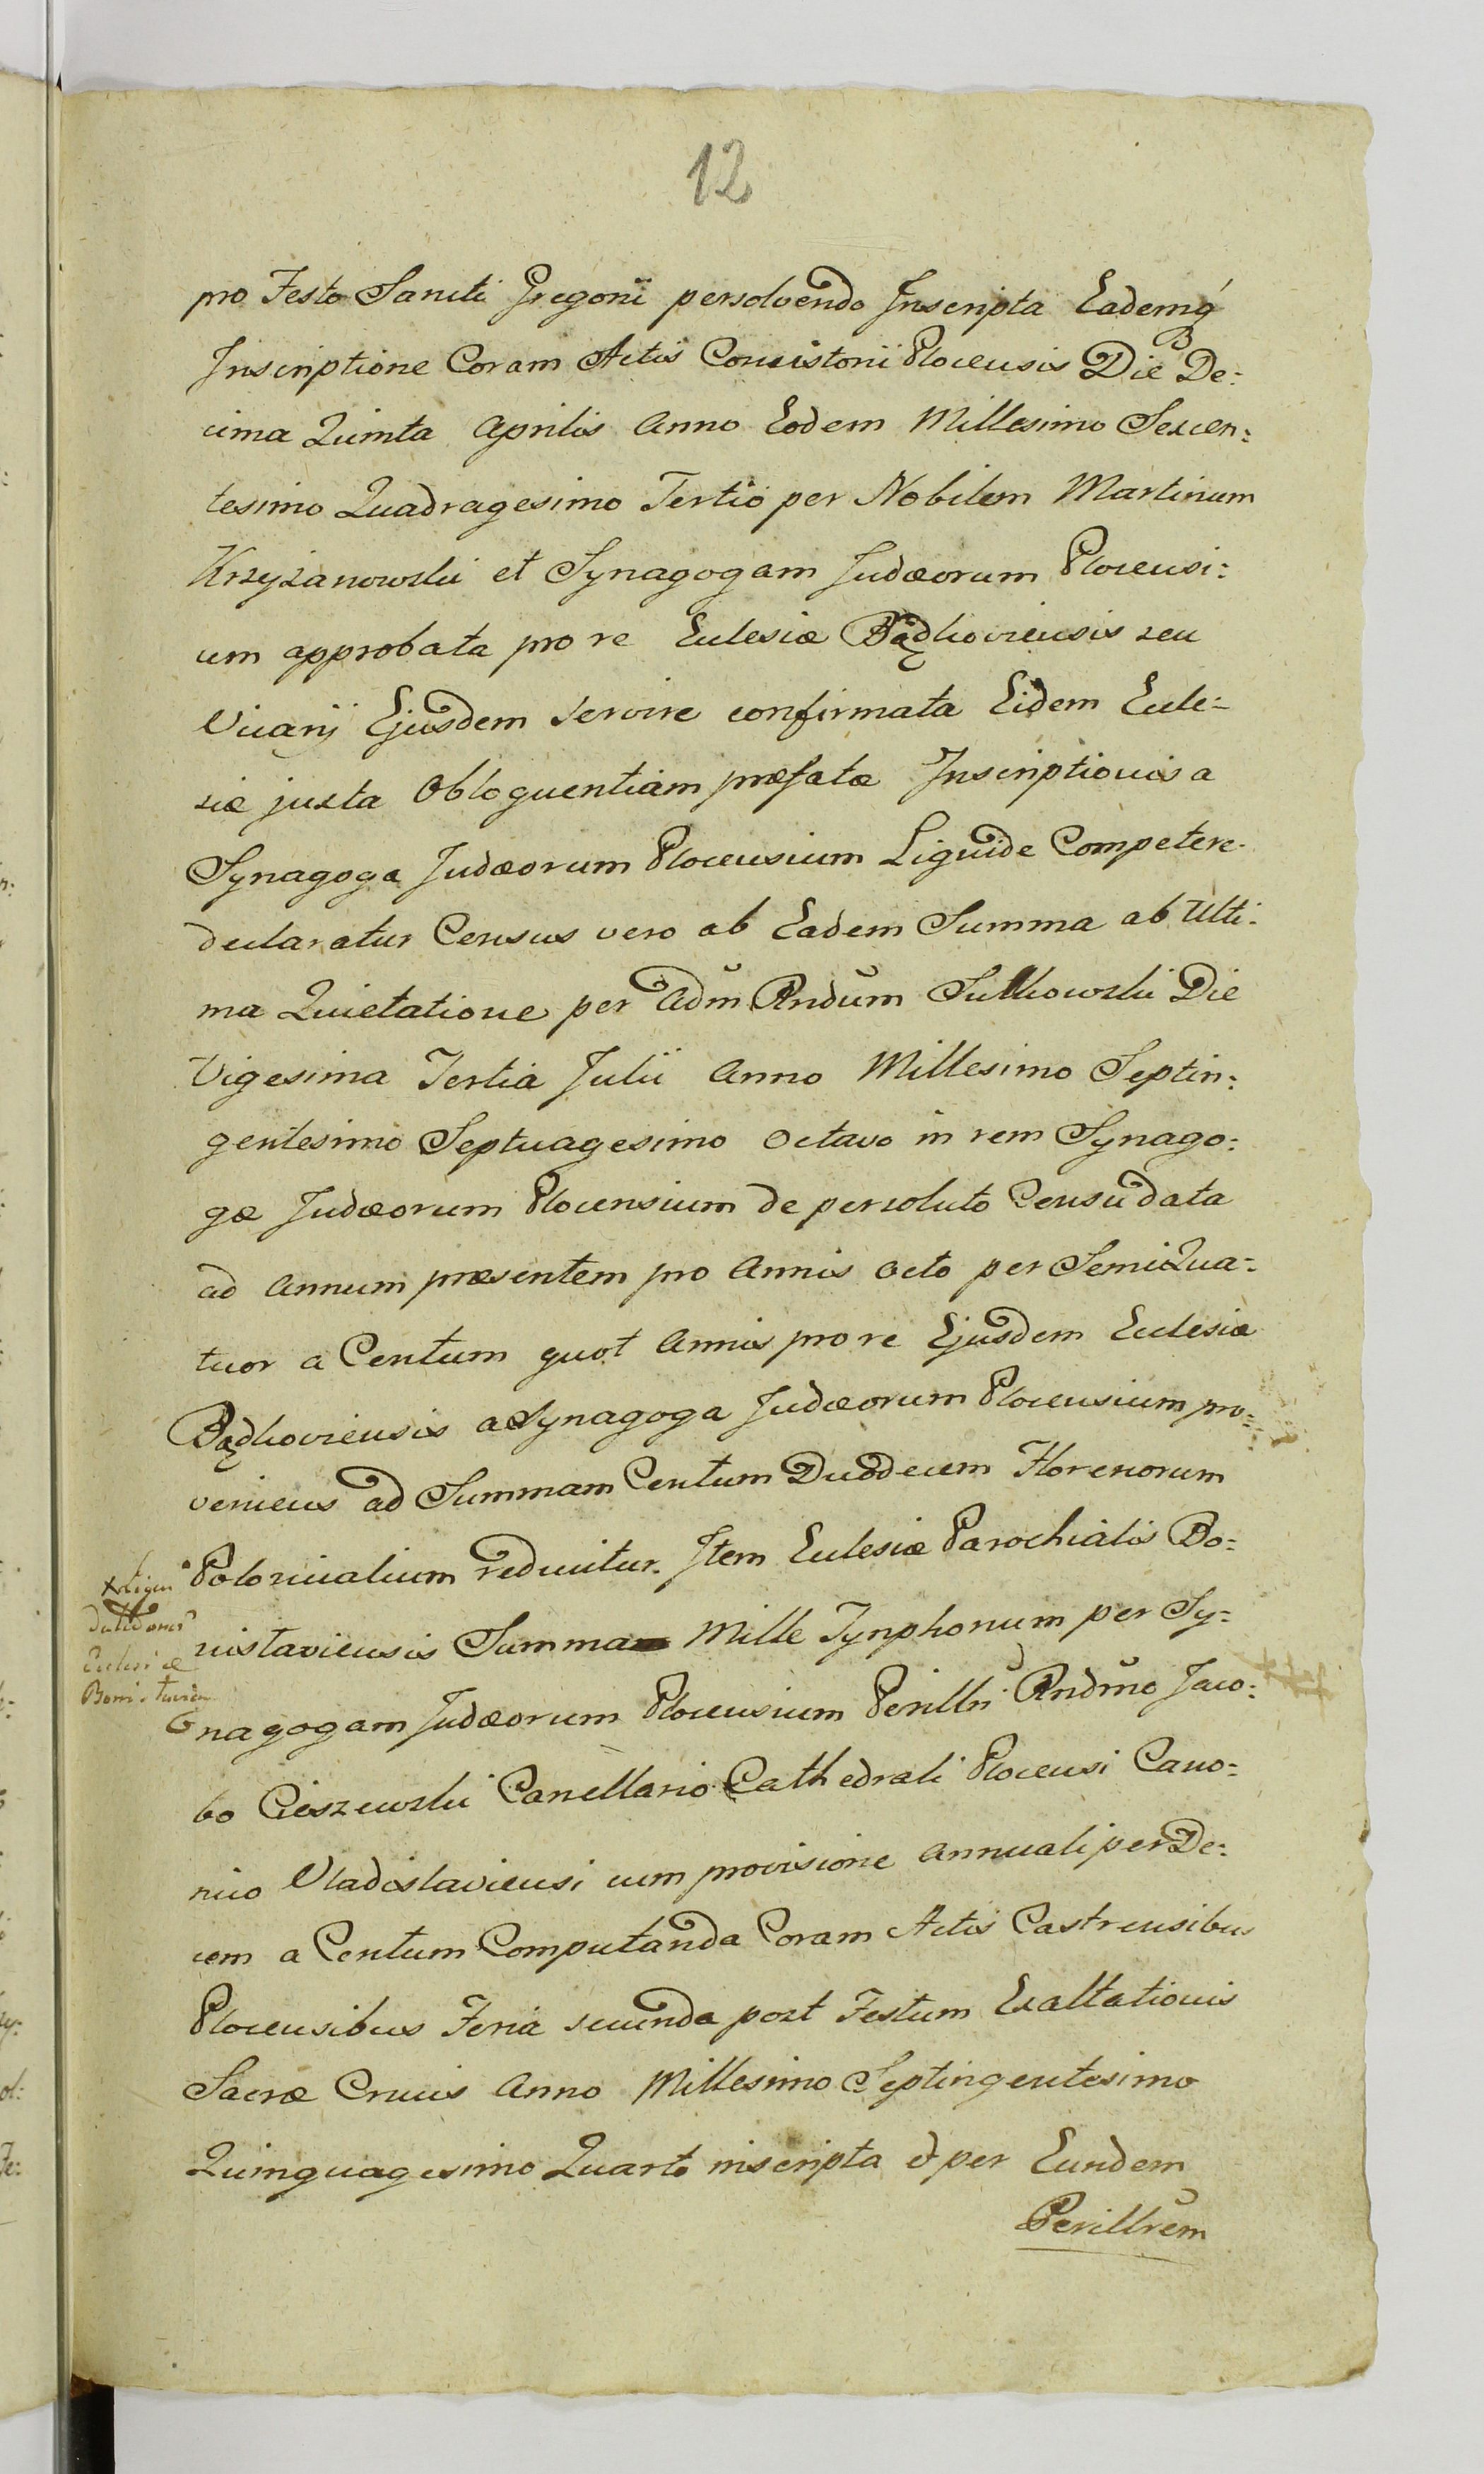 12
pro Festo Sancti Gregorii persolvendo Inscripta Eademq́
Inscriptione Coram Actis Consistorii Plocensis Die De:
cima Quinta Aprilis Anno Eodem Millesimo Sexcen:
tesimo Quadragesimo Tertio per Nobilem Martinum
Krzyżanowski et Synagogam Judæorum Plocensi:
um approbata pro re Eclesiæ Bądkoviensis seu
Vicarij Ejusdem servire confirmata Eidem Ecle-
siæ juxta Obloquentiam præfatæ Inscriptionis a
Synagoga Judæorum Plocensium Liquide Competere
declaratur Census vero ab Eadem Summa ab Ulti-
ma Quietatione per Adm̃ Rndum Sutkowski Die
Vigesima Tertia Julii Anno Millesimo Septin:
gentesimo Septuagesimo Octavo in rem Synago:
gæ Judæorum Plocensium de persoluto Censu data
ad Annum præsentem pro Annis octo per SemiQua:
tuor a Centum quot Annis pro re Ejusdem Eclesiæ
Bądkoviensis a Synagoga Judæorum Plocensium pro:
veniens ad Summam Centum Duodecem Florenorum
Polonicalium reducitur. Item Eclesiæ Parochialis Bo:
nistaviensis Summa Mille Tynphonum per Sy:
nagogam Judæorum Plocensium Perillri Rndmo Jaco:
bo Cieszewski Cancellario Cathedrali Plocensi Cano:
nico Vladislaviensi cum provisione Annuali per De:
cem a Centum Computanda Coram Actis Castrensibus
Plocensibus Feria secunda post Festum Exaltationis
Sacræ Crucis Anno Millesimo Septingentesimo
Quinquagesimo Quarto inscripta & per Eundem
Perillrem
Eclesiæ